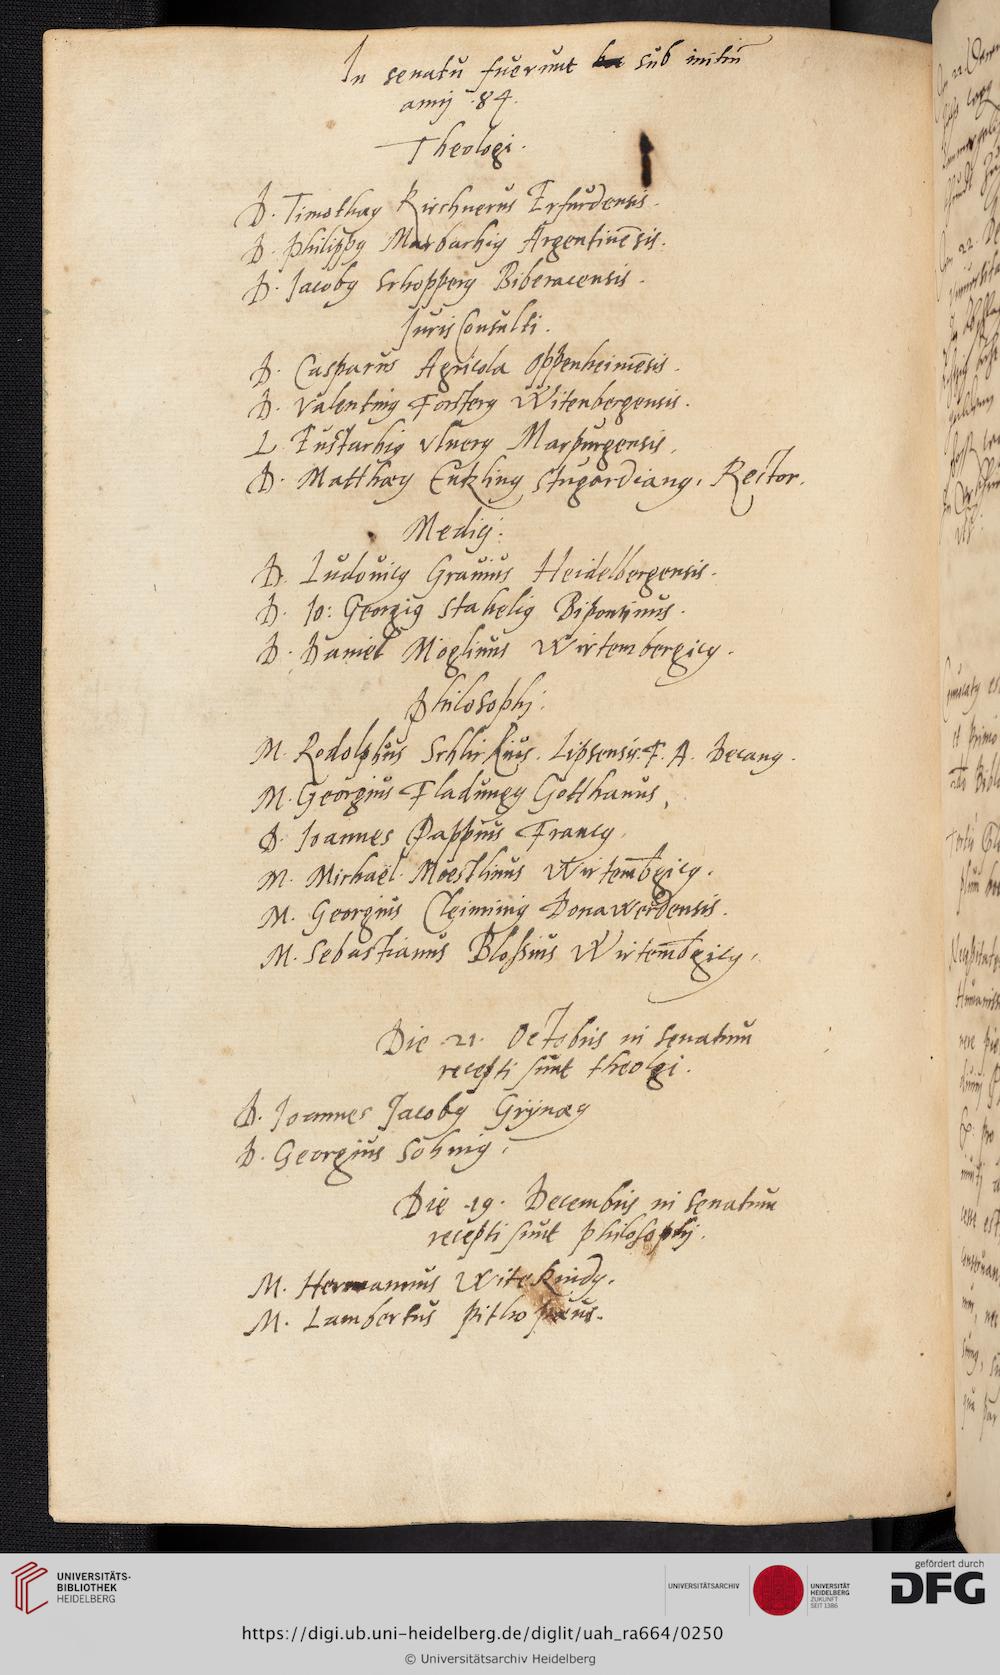 In senatu fuerunt sub initiu
anni .84.
Theologi.
D. Timothæus Kirchnerus Erfurdensis.
D. Philippus Marbachius Argentinēsis.
D. Jacobus Schopperus Biberacensis.
JurisConsulti.
D. Casparus Agricola Oppenheimēsis.
D. Valentinus Forsterus Witenbergensis.
L. Eustachius Vlnerus Marpurgensis.
D. Matthæus Entzlinus Stugardianus. Rector.
Medici.
D. Ludouicus Grauius Heidelbergensis.
D. Jo: Georgius Stahelius Bipontinus.
D. Daniel Möglinus Wirtembergicus.
Philosophi.
M. Rodolphus Schlickius. Lipsensis. F. A. Decanus.
M. Georgius Fladungus Gotthanus.
D. Joannes Pappius Francus.
M. Michaël Moestlinus Wirtembgicus.
M. Georgius Cleiminius Donawerdensis.
M. Sebastianus Bloßius Wirtembgicus.
Die .21. Octobris in Senatum
recepti sunt theolgi.
D. Joannes Jacobus Grÿnæus
D. Georgius Sohnius.
Die .19. Decembris in Senatum
recepti sunt philosophi.
M. Hermannus Witekindus.
M. Lambertus Pithopæus.
UNIVERSITÄTS-
BIBLIOTHEK
HEIDELBERG
UNIVERSITÄTSARCHIV
UNIVERSITÄT
HEIDELBERG
ZUKUNFT
SEIT 1386
gefördert durch
DFG
https://digi.ub.uni-heidelberg.de/diglit/uah_ra664/0250
© Universitätsarchiv Heidelberg